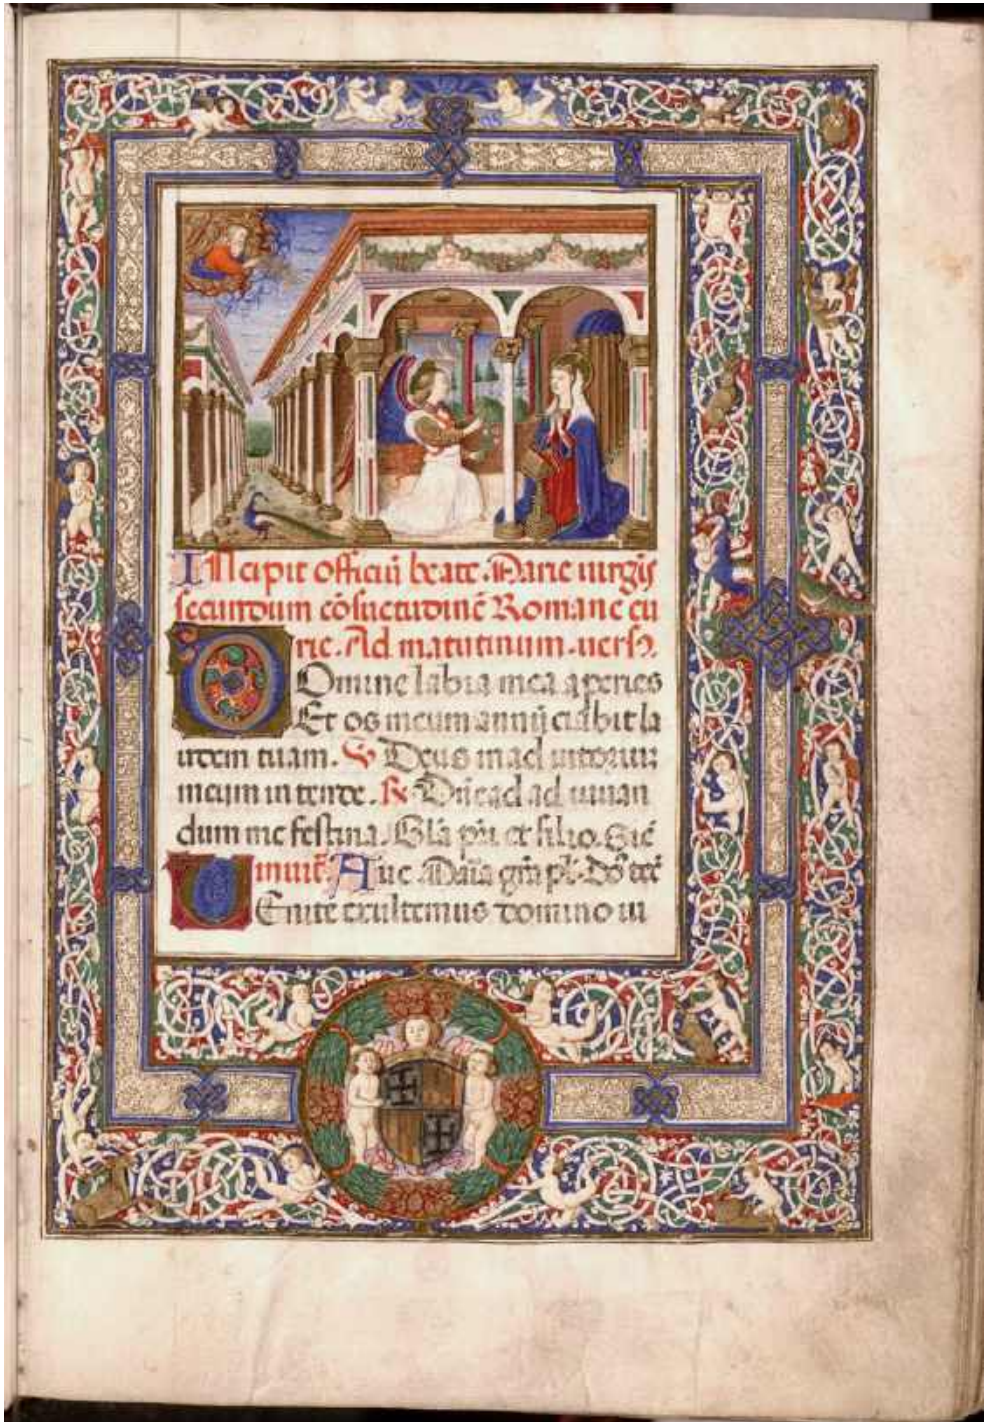 INcipit officiū beate. Marie uirgīs
secundum cōsuetudinē Romane cu
rie. Ad matutinum. uers̄.
Domine labia mea aperies
Et os meum annūciabit la
udem tuam. ℣ Deus in ad iutoriuɜ
meum intende. ℟ Dn̄e ad ad iuuan
dum me festina. Gl̄a pr̄i et filio. Sic̄
inuit̄. Aue Maīa grā pl̄. Dō̄ tec̄
Venite exultemus domino iu